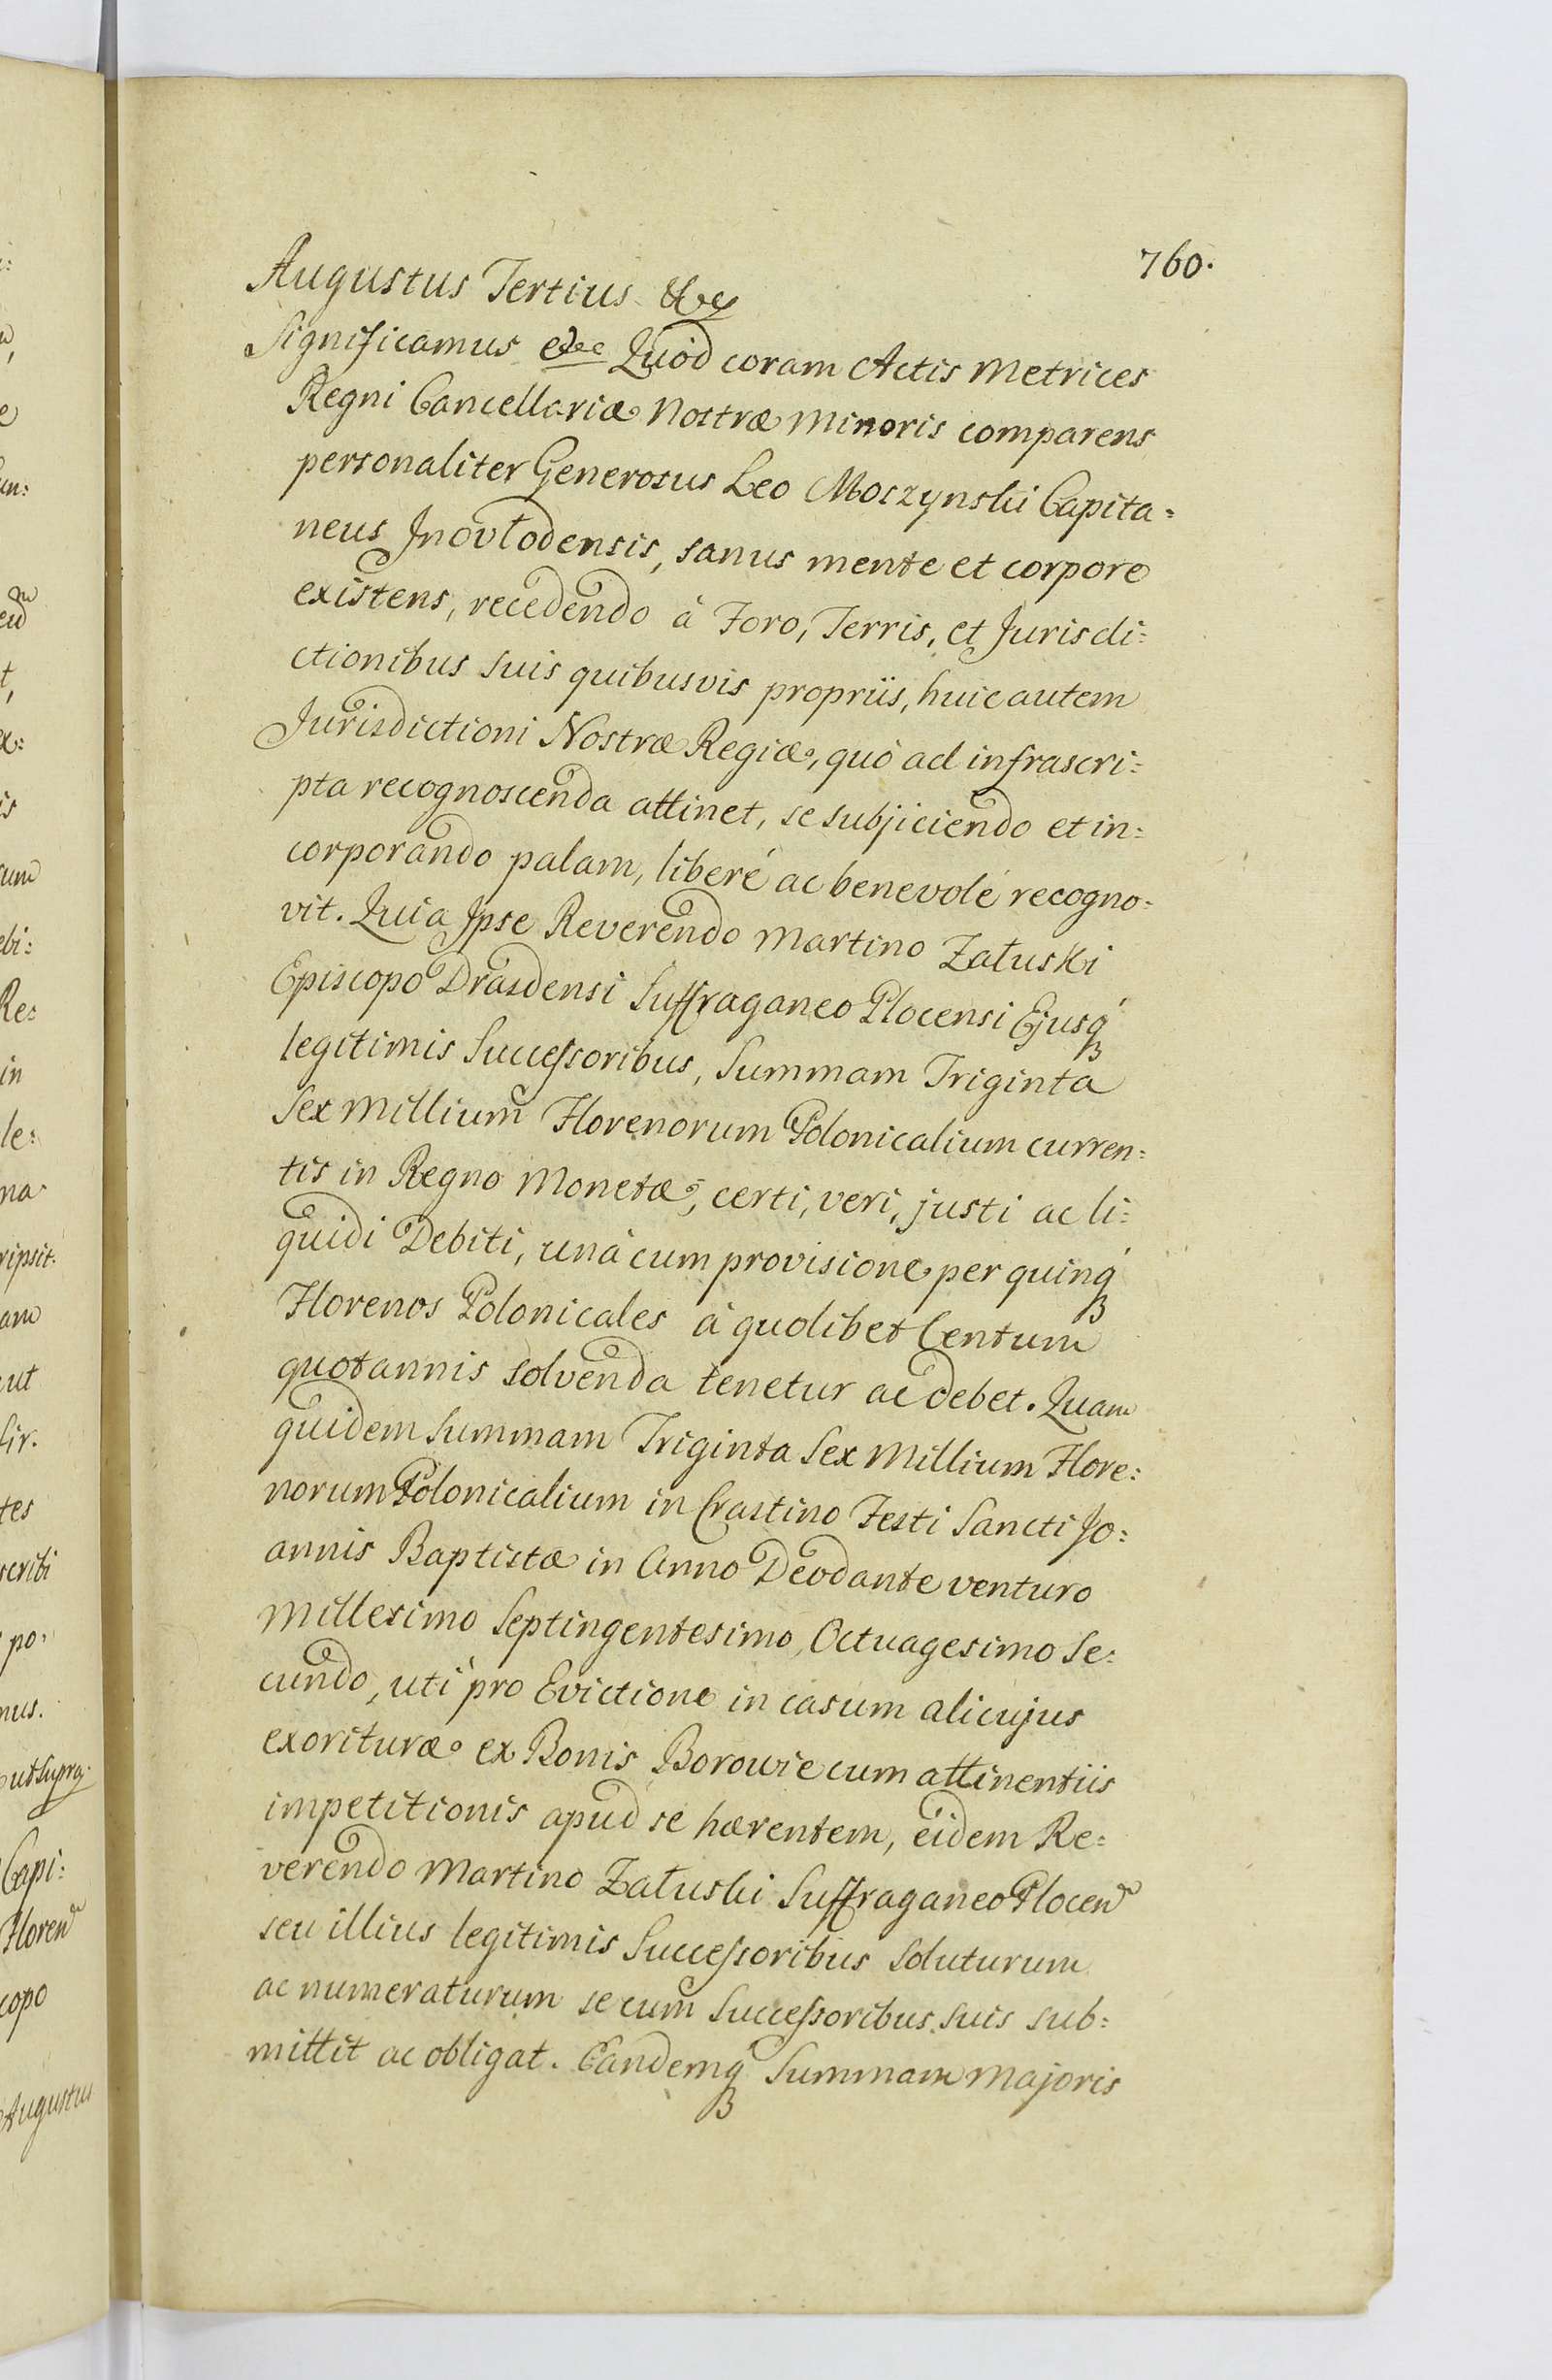 760.
Augustus Tertius &c
Significamus etc Quòd coram Actis Metrices
Regni Cancellariæ Nostræ Minoris comparens
personaliter Generosus Leo Moszynski Capita=
neus Inovłodensis, sanus mente et corpore
existens, recedendo à Foro, Terris, et Jurisdi=
ctionibus suis quibusvis propriis, huic autem
Jurisdictioni Nostræ Regiæ, quò ad infrascri=
pta recognoscenda attinet, se subjiciendo et in=
corporando palam, liberé ac benevolé recogno=
vit. Quia Ipse Reverendo Martino Załuski
Episcopo Drasdensi Suffraganeo Plocensi Ejusq́ꝫ
legitimis Successoribus, Summam Triginta
Sex Millium Florenorum Polonicalium curren=
tis in Regno Monetæ, certi, veri, justi ac li=
quidi Debiti, unà cum provisione per quinq́ꝫ
Florenos Polonicales à quolibet Centum
quotannis solvenda tenetur ac debet. Quam
quidem Summam Triginta Sex Millium Flore=
norum Polonicalium in Crastino Festi Sancti Jo=
annis Baptistæ in Anno Deodante venturo
Millesimo Septingentesimo, Octuagesimo Se=
cundo, uti pro Evictione in casum alicujus
exorituræ ex Bonis Borowie cum attinentiis
impetitionis apud se hærentem, eidem Re=
verendo Martino Załuski Suffraganeo Plocen
seu illius legitimis Successoribus soluturum
ac numeraturum se cum Successoribus suis sub=
mittit ac obligat. Eandemq́ꝫ Summam Majoris